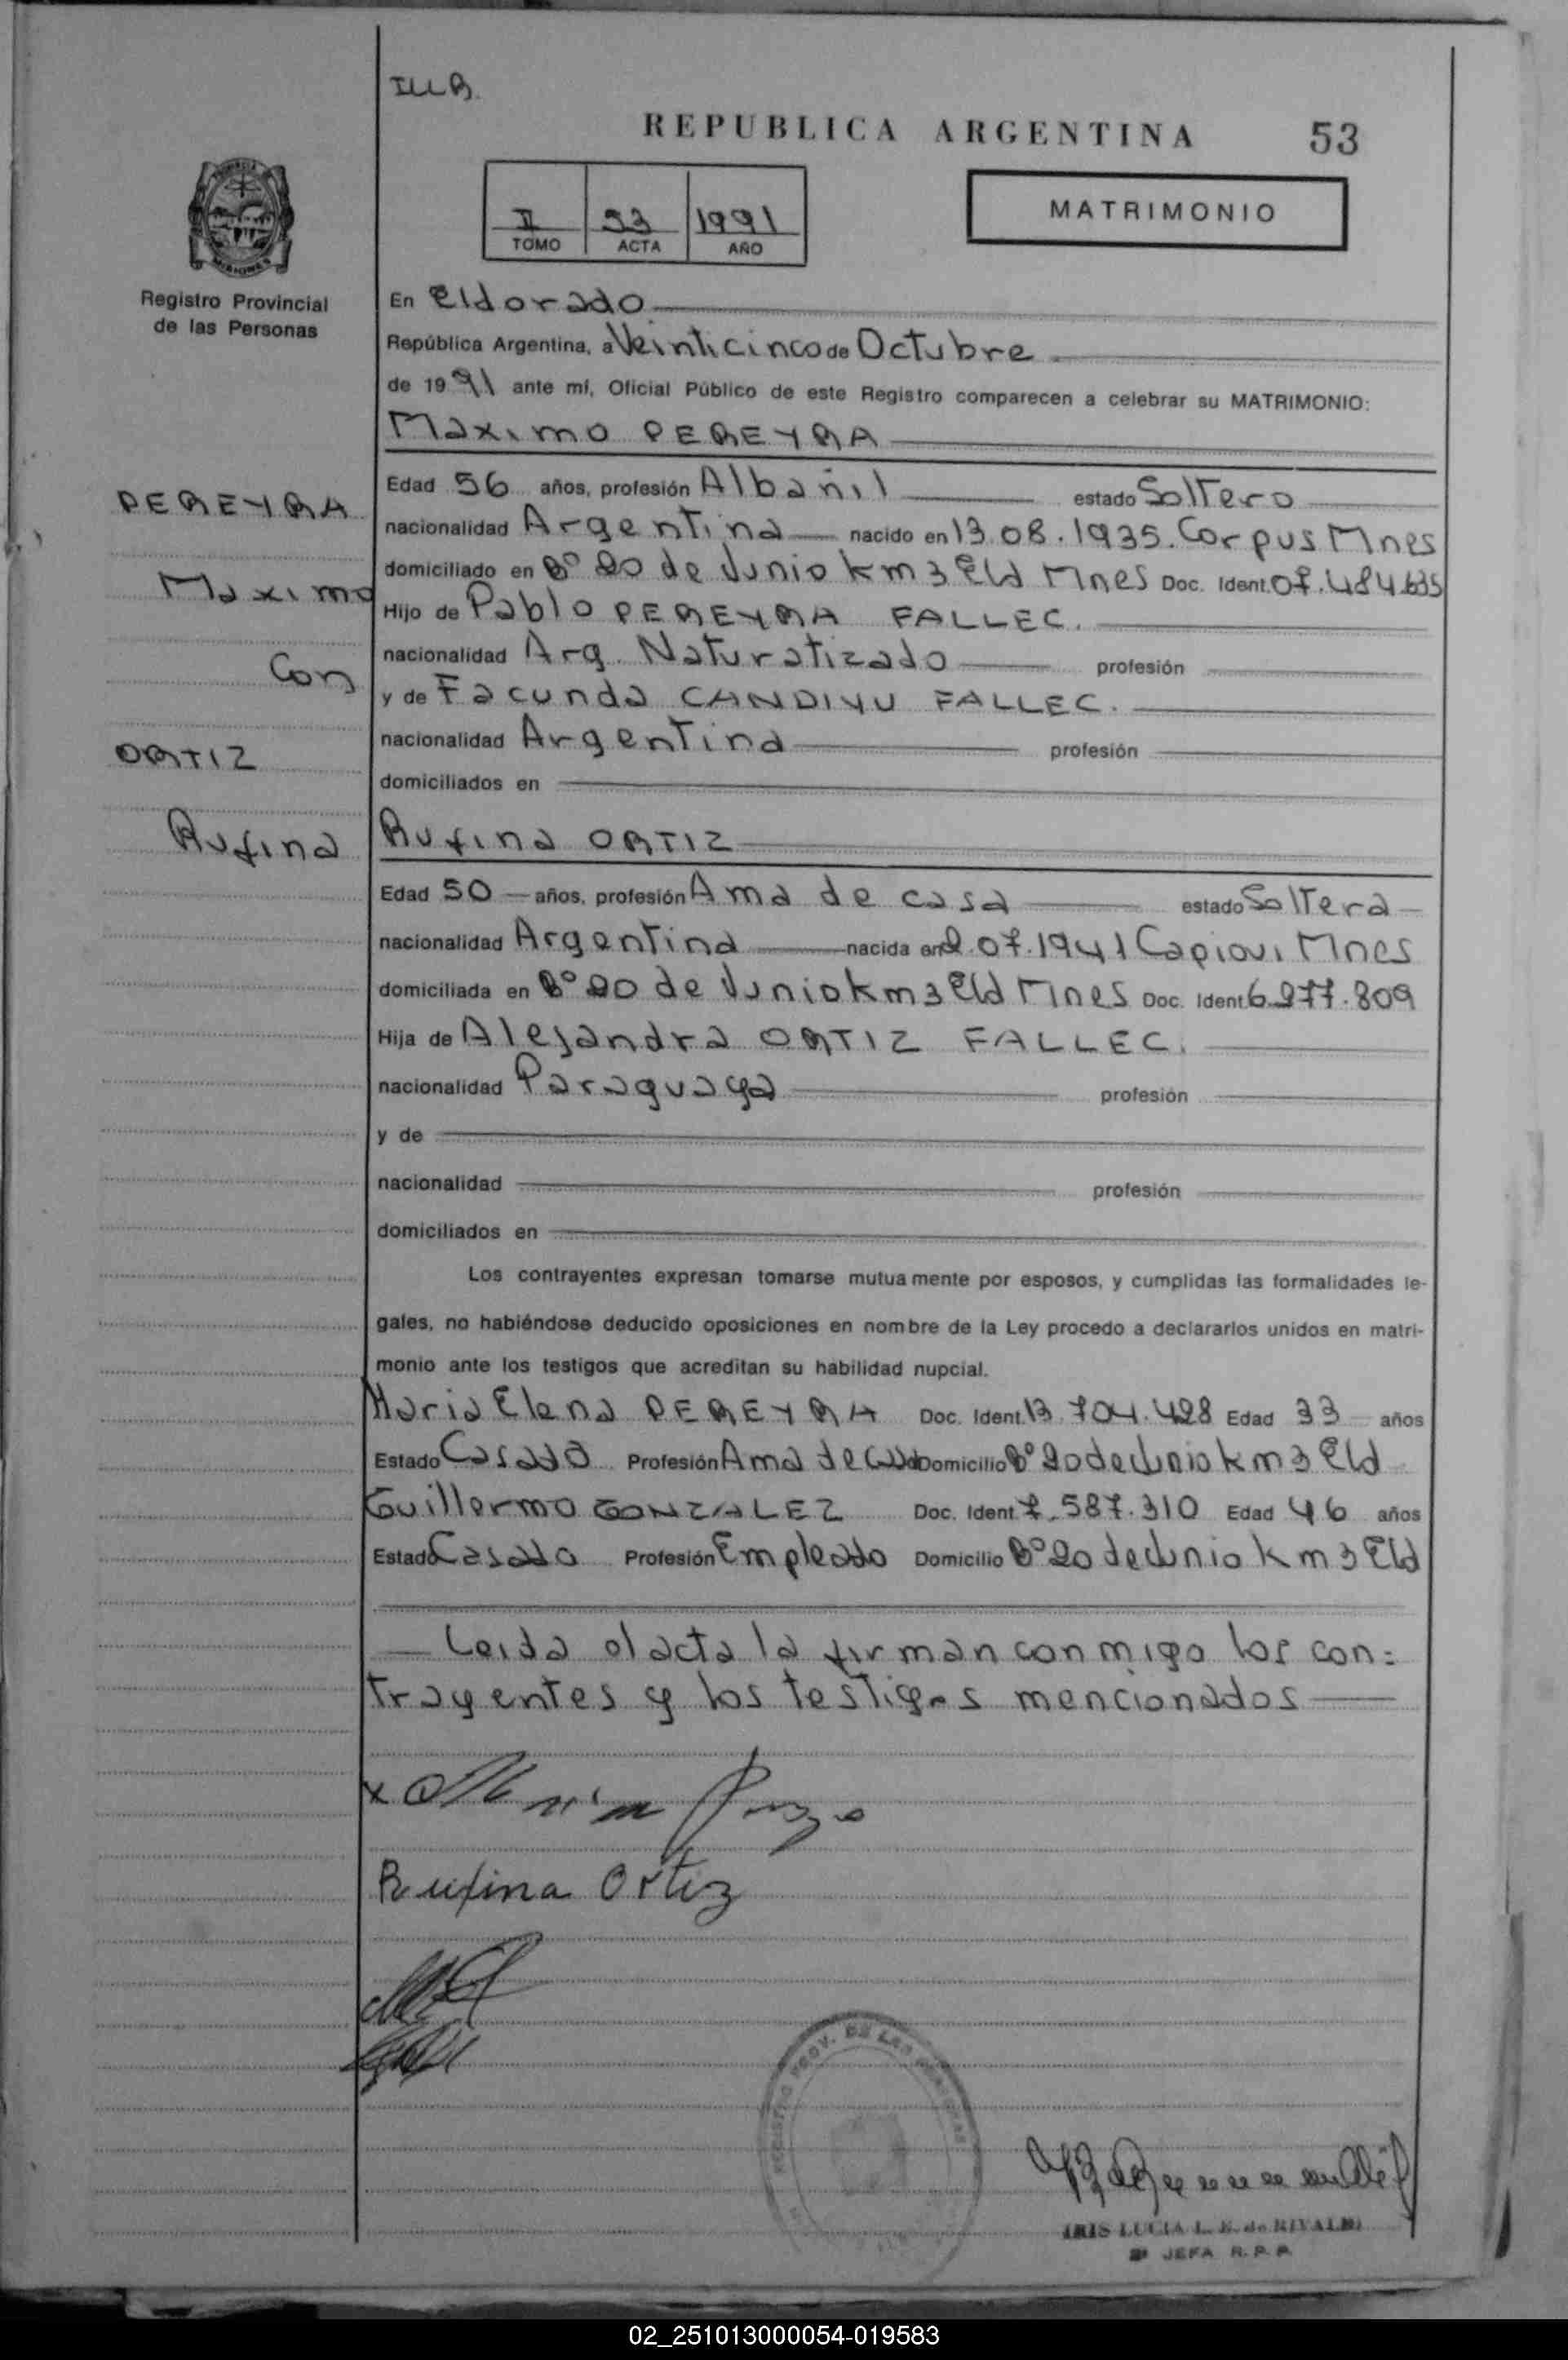 ILLR.
REPUBLICA ARGENTINA 53
II 53 1991
TOMO ACTA AÑO
MATRIMONIO
Registro Provincial
de las Personas
En Eldorado
República Argentina, a Veinticinco de Octubre
de 1991 ante mí, Oficial Público de este Registro comparecen a celebrar su MATRIMONIO:
Maximo PEREYRA
PEREYRA
Maximo
Con
ORTIZ
Rufina
Edad 56 años, profesión Albañil estado Soltero
nacionalidad Argentina nacido en 13.08.1935. Corpus Mnes
domiciliado en Bº 20 de Junio km 3 Eld Mnes Doc. Ident. 07.484.635
Hijo de Pablo PEREYRA FALLEC.
nacionalidad Arg. Naturalizado profesión
y de Facunda CANDIYU FALLEC.
nacionalidad Argentina profesión
domiciliados en
Rufina ORTIZ
Edad 50 años, profesión Ama de casa estado Soltera
nacionalidad Argentina nacida en 2.07.1941 Capiovi Mnes
domiciliada en Bº 20 de Junio km 3 Eld Mnes Doc. Ident. 6.277.809
Hija de Alejandra ORTIZ FALLEC.
nacionalidad Paraguaya profesión
y de
nacionalidad profesión
domiciliados en
Los contrayentes expresan tomarse mutuamente por esposos, y cumplidas las formalidades le-
gales, no habiéndose deducido oposiciones en nombre de la Ley procedo a declararlos unidos en matri-
monio ante los testigos que acreditan su habilidad nupcial.
Maria Elena PEREYRA Doc. Ident. 13.704.428 Edad 33 años
Estado Casada Profesión Ama de Casa Domicilio Bº 20 de Junio km 3 Eld
Guillermo GONZALEZ Doc. Ident. 7.587.310 Edad 46 años
Estado Casado Profesión Empleado Domicilio Bº 20 de Junio km 3 Eld
Leida el acta la firman conmigo los con=
trayentes y los testigos mencionados
Rufina Ortiz
IRIS LUCIA L. E. de RIVALDI
JEFA R. P. P.
02_251013000054-019583